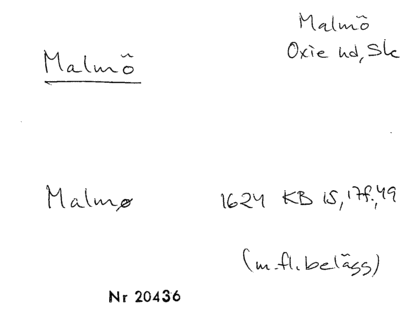 Malmö
Oxie hd, Sk
Malmö
Malmø 1624 KB 15, 17f., 49
(m.fl. belägg)
Nr 20436